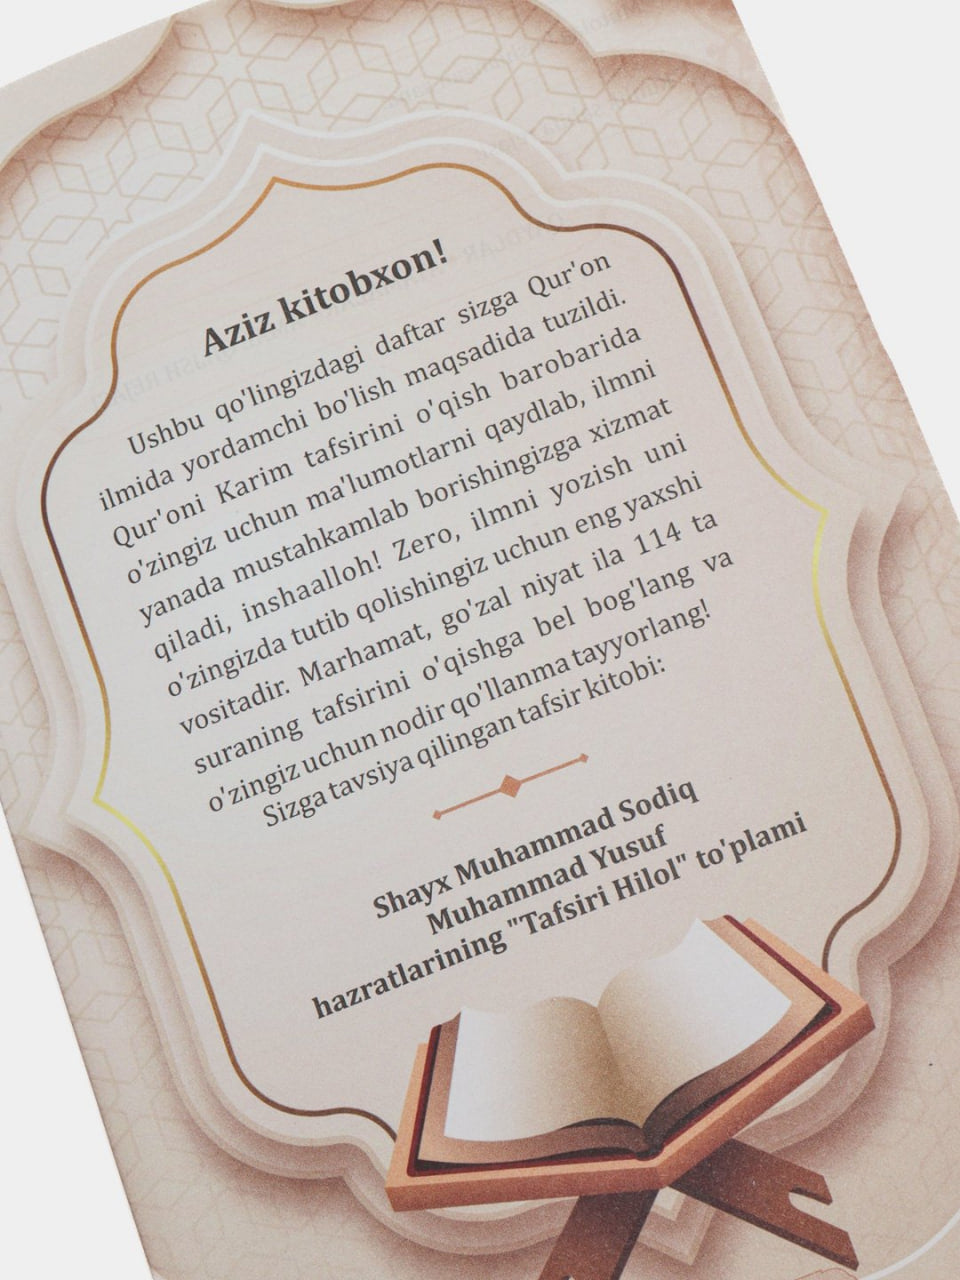 Aziz kitobxon!
Ushbu qo'lingizdagi daftar sizga Qur'on
ilmida yordamchi bo'lish maqsadida tuzildi.
Qur'oni Karim tafsirini o'qish barobarida
o'zingiz uchun ma'lumotlarni qaydlab, ilmni
yanada mustahkamlab borishingizga xizmat
qiladi, inshaalloh! Zero, ilmni yozish uni
o'zingizda tutib qolishingiz uchun eng yaxshi
vositadir. Marhamat, go'zal niyat ila 114 ta
suraning tafsirini o'qishga bel bog'lang va
o'zingiz uchun nodir qo'llanma tayyorlang!
Sizga tavsiya qilingan tafsir kitobi:
Shayx Muhammad Sodiq
Muhammad Yusuf
hazratlarining "Tafsiri Hilol" to'plami